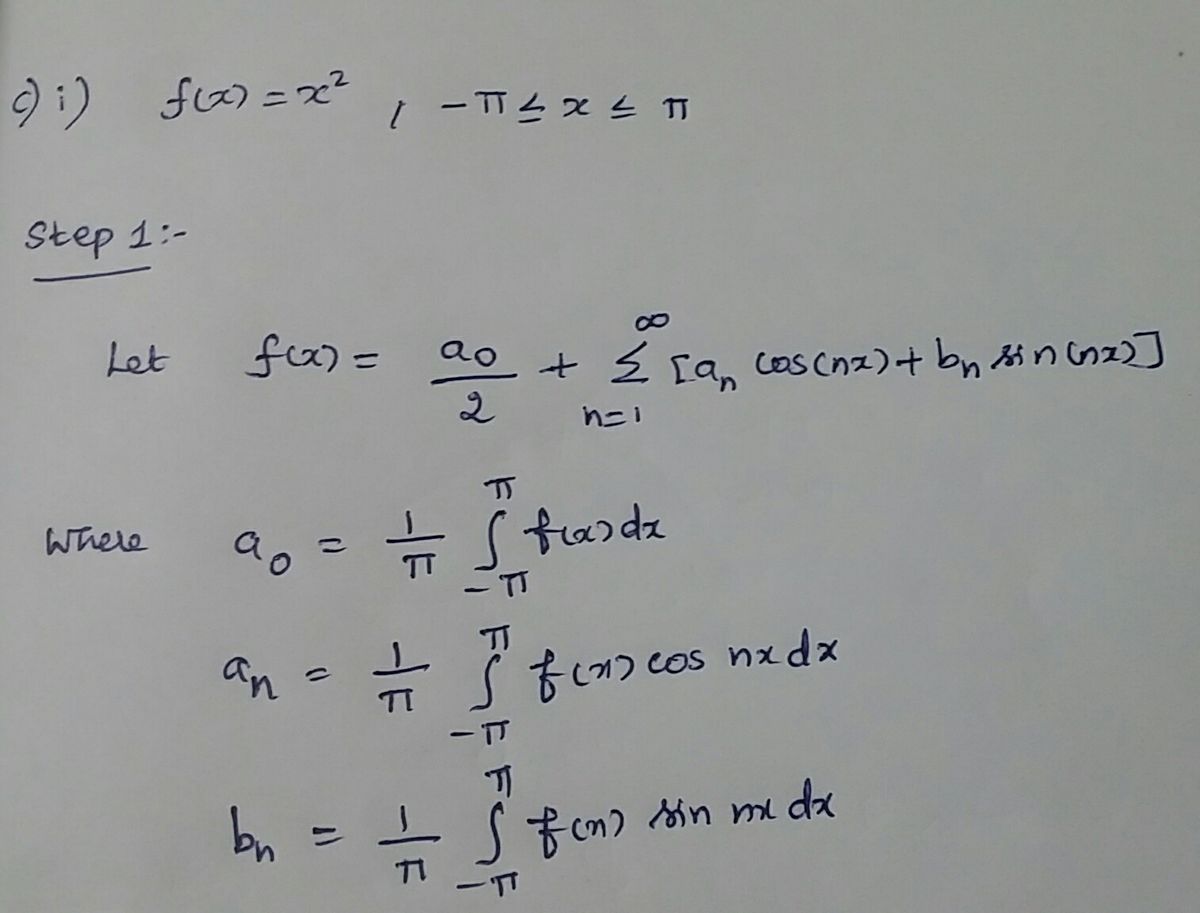 c) i) f(x) = x², -π ≤ x ≤ π
Step 1:-
Let f(x) = a₀/2 + Σ_{n=1}^{∞} [aₙ cos(nx) + bₙ sin(nx)]
Where a₀ = 1/π ∫_{-π}^{π} f(x) dx
aₙ = 1/π ∫_{-π}^{π} f(x) cos nx dx
bₙ = 1/π ∫_{-π}^{π} f(x) sin nx dx